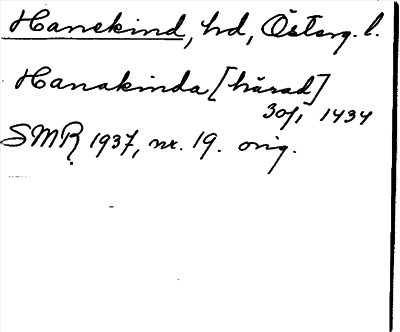 Hanekind, hd, Österg. l.
Hanakinda [härad]
30/1 1434
SMR 1937, nr. 19. orig.